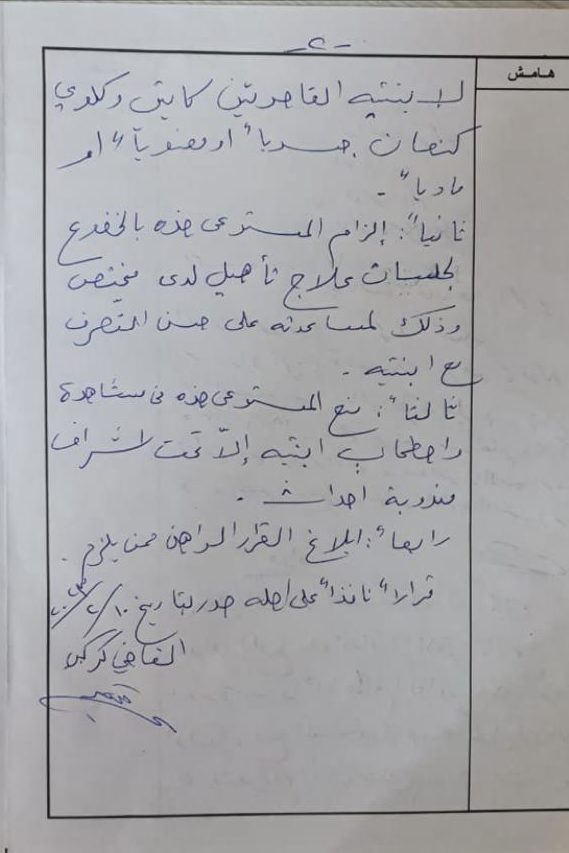 -٢-
هامش
لابنتيه القاصرتين كايتي وكلوي
كنعان جسدياً او معنوياً او
مادياً .
ثانياً: إلزام المستدعى ضده بالخضوع
لجلسات علاج تأهيل لدى مختص
وذلك لمساعدته على حسن التصرف
مع ابنتيه .
ثالثاً: منع المستدعى ضده من مشاهدة
واصطحاب ابنتيه إلا تحت اشراف
مندوبة احداث .
رابعاً: ابلاغ القرار الراهن ممن يلزم .
قراراً نافذاً على اصله صدر بتاريخ ١٠/٢/
القاضي كركبي